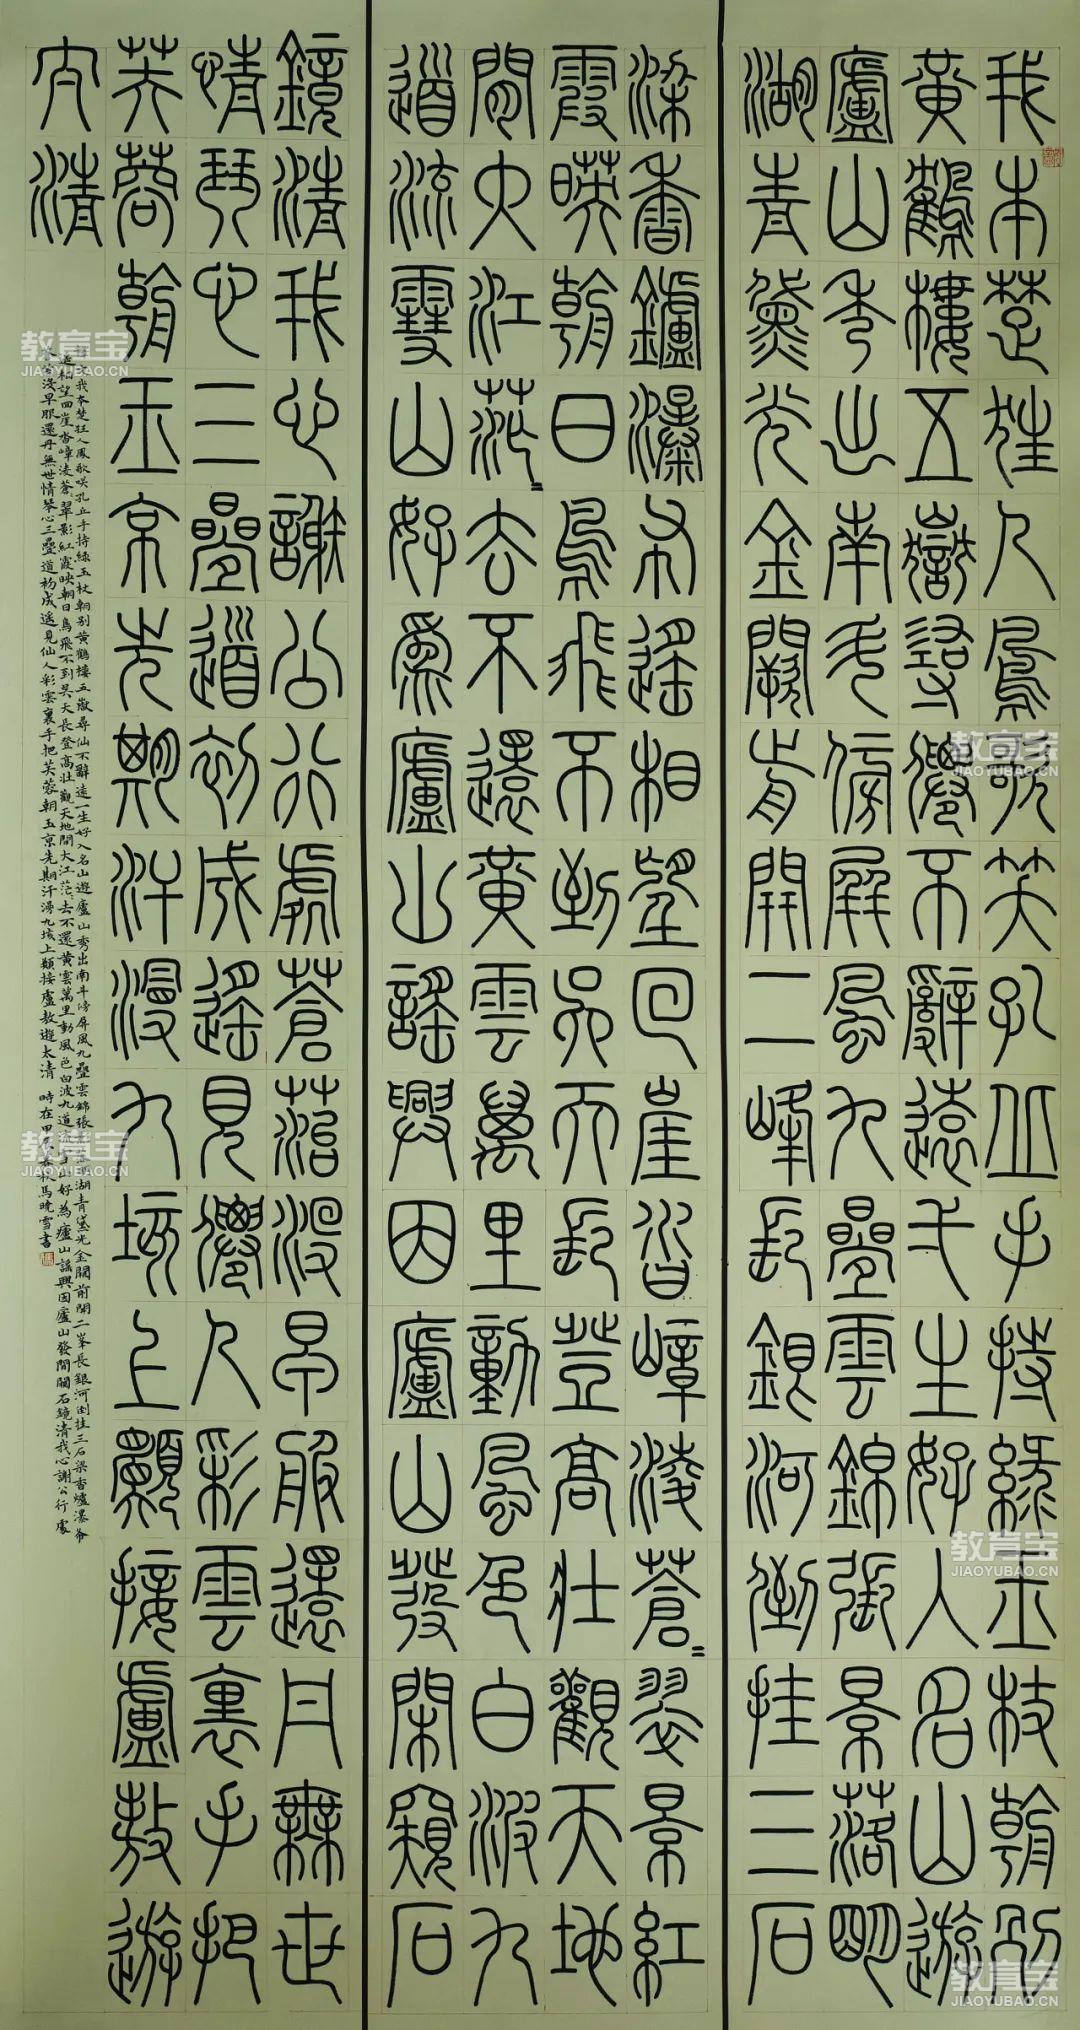 我本楚狂人鳳歌笑孔丘手持綠玉枝朝別
黃鶴樓五嶽尋僊不辭遠弌生好入名山遊
廬山秀出南斗傍屏風九疊雲錦張景落明
湖青黛光金闕前開二峰長銀河倒挂三石
梁香鑪瀑布遙相望回崖沓嶂淩蒼=翠景紅
霞暎朝日鳥飛不到吳天長登高壯觀天地
間大江茫=去不還黃雲萬里動風色白波九
道流雪山好為廬山謠興因廬山發閒窺石
鏡清我心謝公行處蒼苔沒早服還丹無世
情琴心三疊道初成遙見僊人彩雲裏手把
芙蓉朝玉京先期汗漫九垓上願接盧敖遊
太清
我本楚狂人鳳歌咲孔丘手持綠玉杖朝別黃鶴樓五嶽尋仙不辭遠一生好入名山遊廬山秀出南斗傍屏風九疊雲錦張湖青黛光金闕前開二峯長銀河倒挂三石梁香爐瀑布
遙相望回崖沓嶂凌蒼翠影紅霞映朝日鳥飛不到吳天長登高壯觀天地間大江茫去不還黃雲萬里動風色白波九道山好為廬山謠興因廬山發閒闚石鏡清我心謝公行處
沒早服還丹無世情琴心三疊道初成遙見仙人彩雲裏手把芙蓉朝玉京先期汗漫九垓上願接盧敖遊太清 時在甲辰秋馬曉雪書
教育宝
JIAOYUBAO.CN
教育宝
JIAOYUBAO.CN
教育宝
JIAOYUBAO.CN
教育宝
JIAOYUBAO.CN
教育宝
JIAOYUBAO.CN